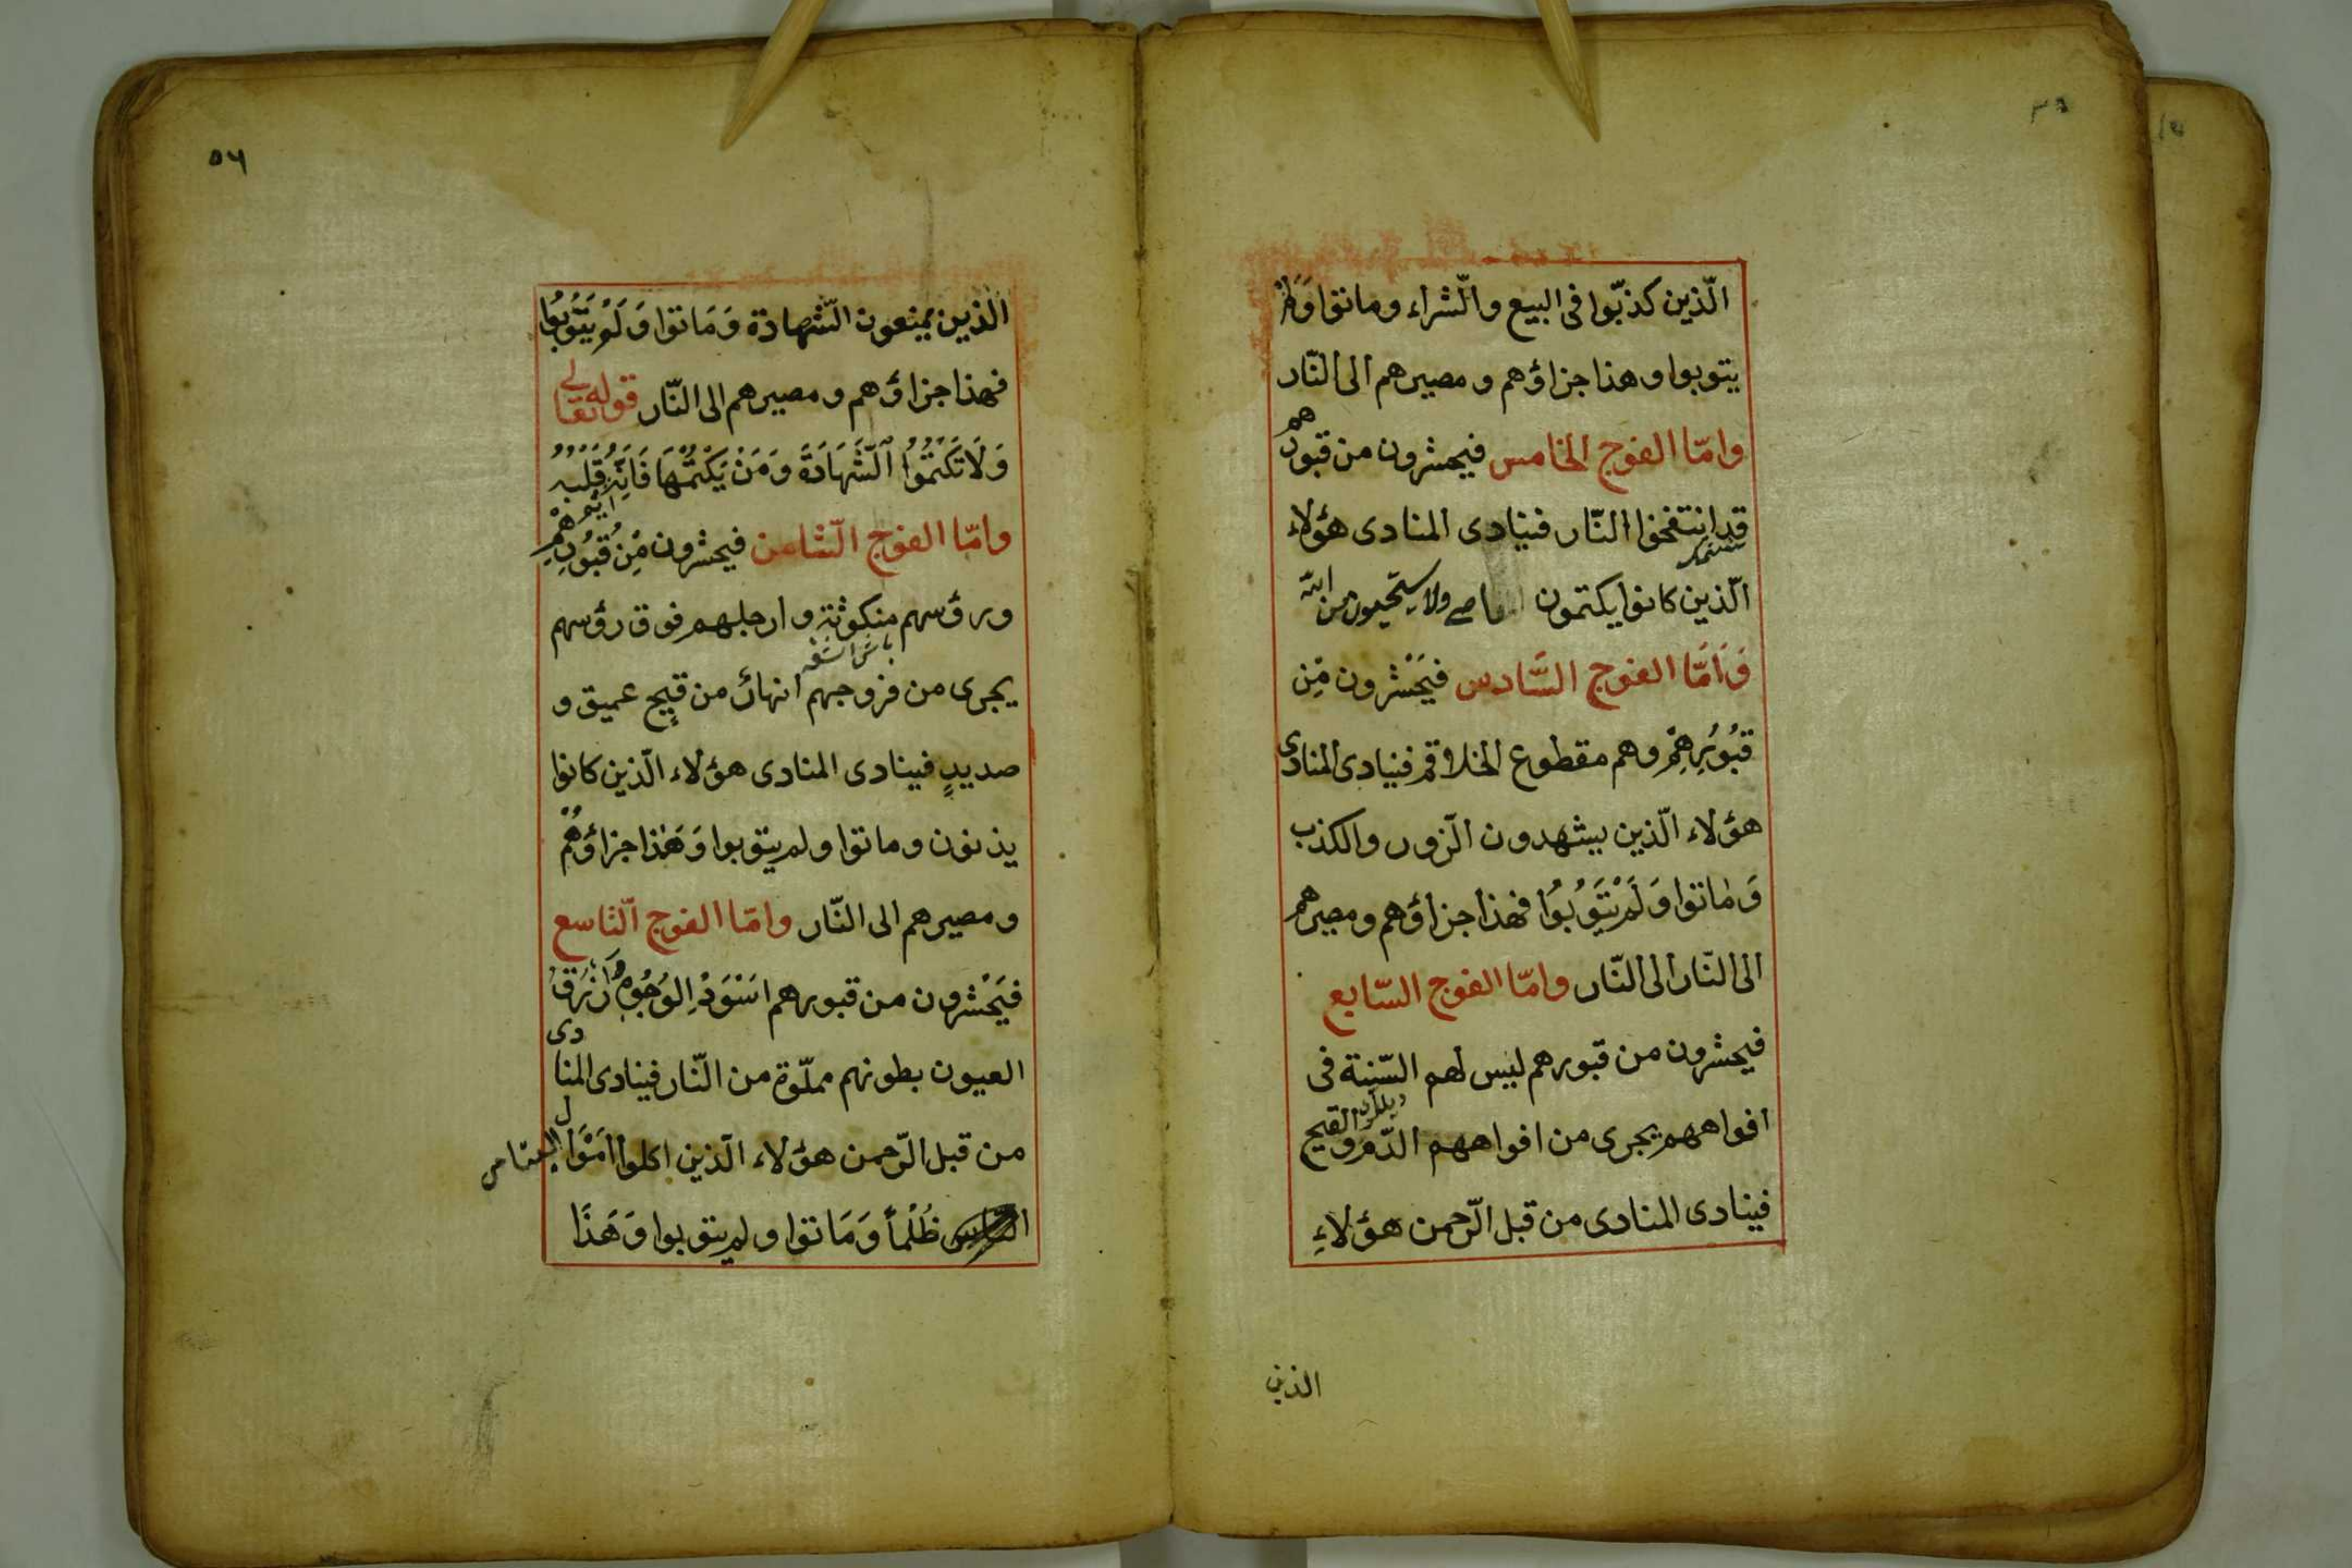 الّذين كذبّوا فى البيع والّشراء وماتوا وَلَمْ
يتوبوا وهذا جزاؤهم ومصيرهم الى النّار
وامّا الفوج الخامس فيحشرون من قبورهم
قد انتفخوا النّار فينادى المنادى هؤلاء
الّذين كانوا يكتمون ولا يستحيون من الله
وَاَمّا الفوج السَّادس فيَحْشرون مْن
قبُورِهِمْ وهم مقطوع الخلاقم فينادى المنادى
هؤلاء الّذين يشهدون الّزور والكذب
وَمٰاتوا وَلَمْ يَتَوُبُوا فهذا جزاؤهم ومصيرهم
الى النّار الى النّار وامّا الفوج السّابع
فيحشرون من قبورهم ليس لهم السّنة فى
افواههم يجرى من افواههم الدّم والقيح
فينادى المنادى من قبل الّرحمن هؤلاءِ
الذين
٥٦
الّذين يمنعون الّشهادة وَمَاتوا وَلَمْ يَتَوبُوا
فهذا جزاؤهم ومصيرهم الى النّار قوله تعالى
وَلَا تَكْتمُوُا الَّشَهَادَةَ وَمَنْ يَكْتمْهَا فَاِنَّهُ اٰثِمٌ قَلبُهُ
وامّا الفوج الّثامن فيحشرون مْن قبُورِهِمْ
ورؤسهم منكوثة وارجلهم فوق رؤسهم
يجرى من فزوجهم انهارٌ من قيحٍ عميق و
صديدٍ فينادى المنادى هؤلاء الّذين كانوا
يذنون وماتوا ولم يتوبوا وَهَذا جزاؤهُمْ
ومصيرهم الى النّار وامّا الفوج الّتاسع
فيَحْشرون من قبورهم اسَوَدُ الوُجُوهِ اَزْرَق
العيون بطونهم مملّوة من النّار فينادى المنادى
من قبل الّرحمن هؤلاء الّذين اكلوا اَمْوَال اليتامى
ظُلْماً وَمَاتوا ولم يتوبوا وَهَذَا